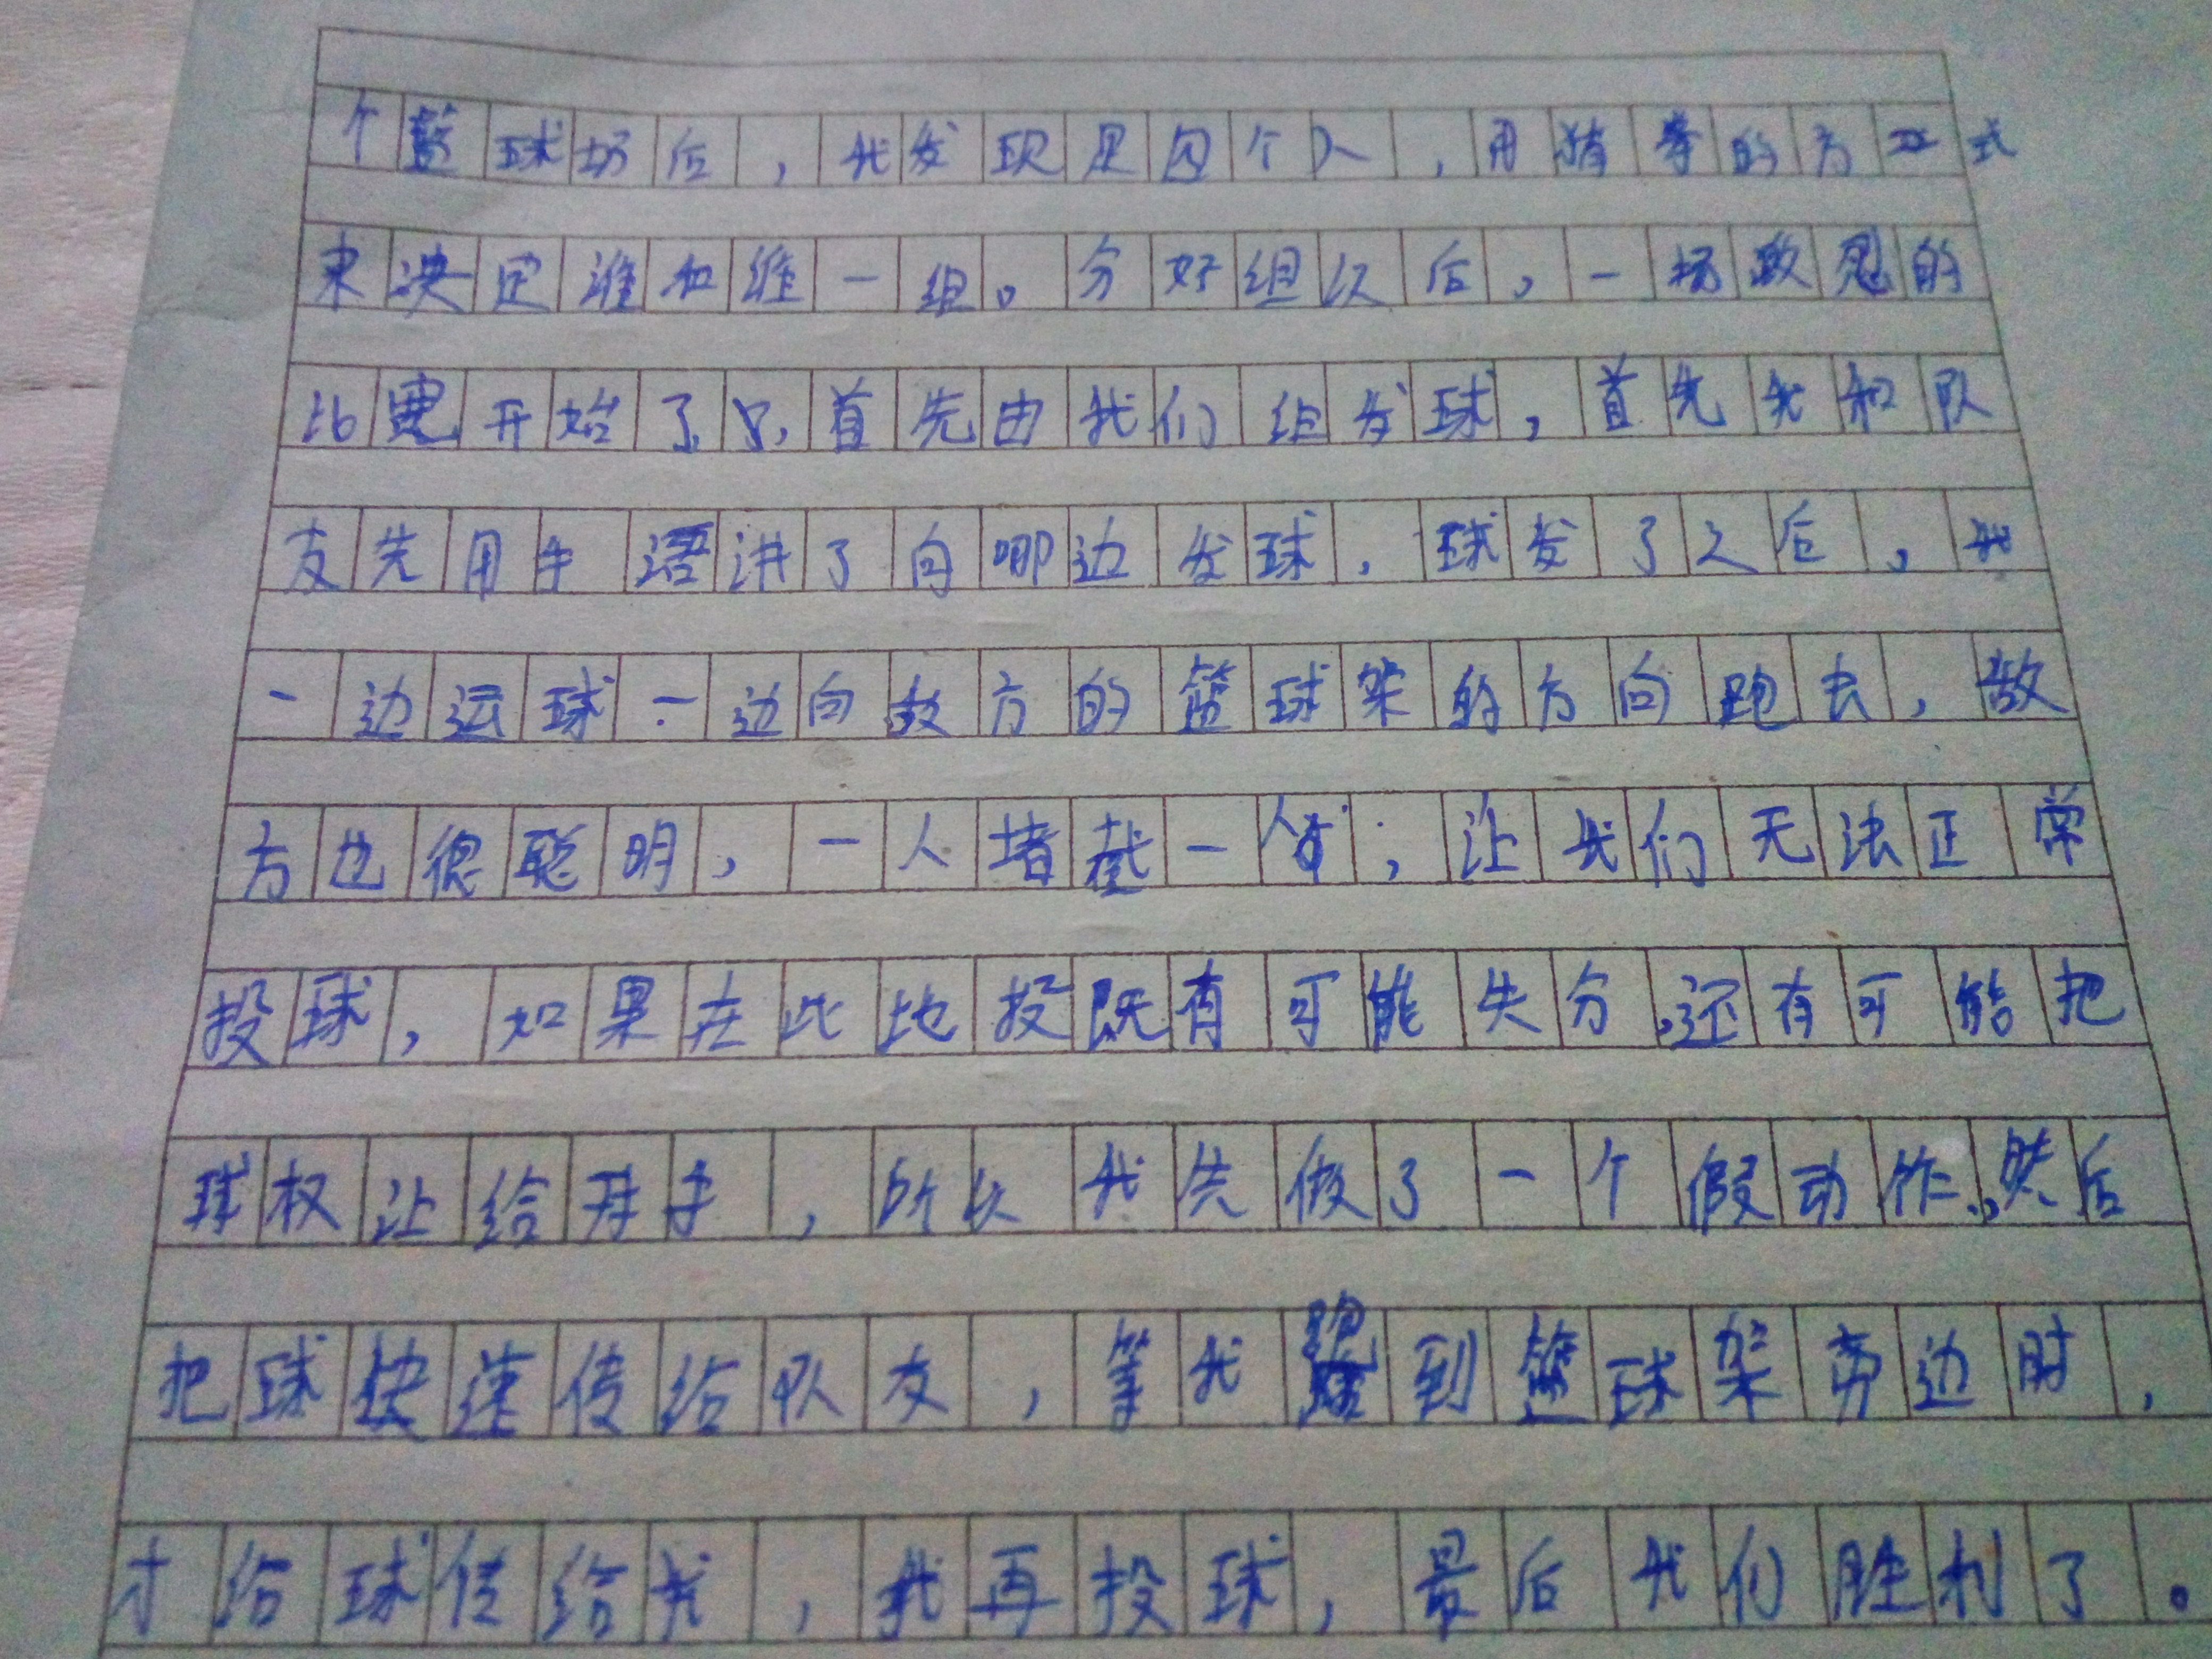 个篮球场后，我发现是四个人，用猜拳的方式
来决定谁和谁一组。分好组以后，一场的
比赛开始了，首先由我们组发球，首先我和队
友先用手语讲了向哪边发球，球发了之后，我
一边运球一边向敌方的篮球架的方向跑去，敌
方也很聪明，一人堵截一个，让我们无法正常
投球，如果在此地投既有可能失分，还有可能把
球权让给对手，所以我先做了一个假动作，然后
把球快速传给队友，等我跑到篮球架旁边时，
才给球传给我，我再投球，最后我们胜利了。